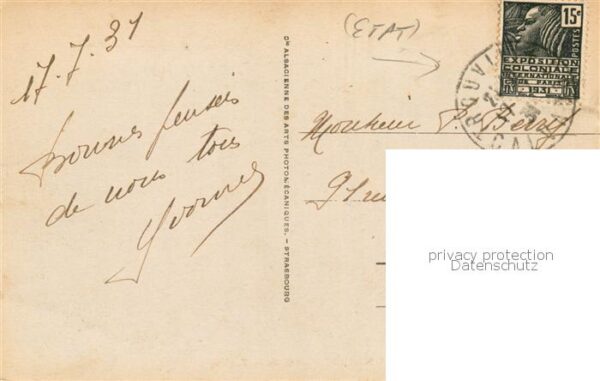 17.7.31
Bonnes pensées
de nous tous
Yvonne
Cie ALSACIENNE DES ARTS PHOTOMÉCANIQUES. - STRASBOURG
(ETAT)
15c
POSTES
EXPOSITION
COLONIALE
INTERNATIONALE
1931
Monsieur P.
privacy protection
Datenschutz